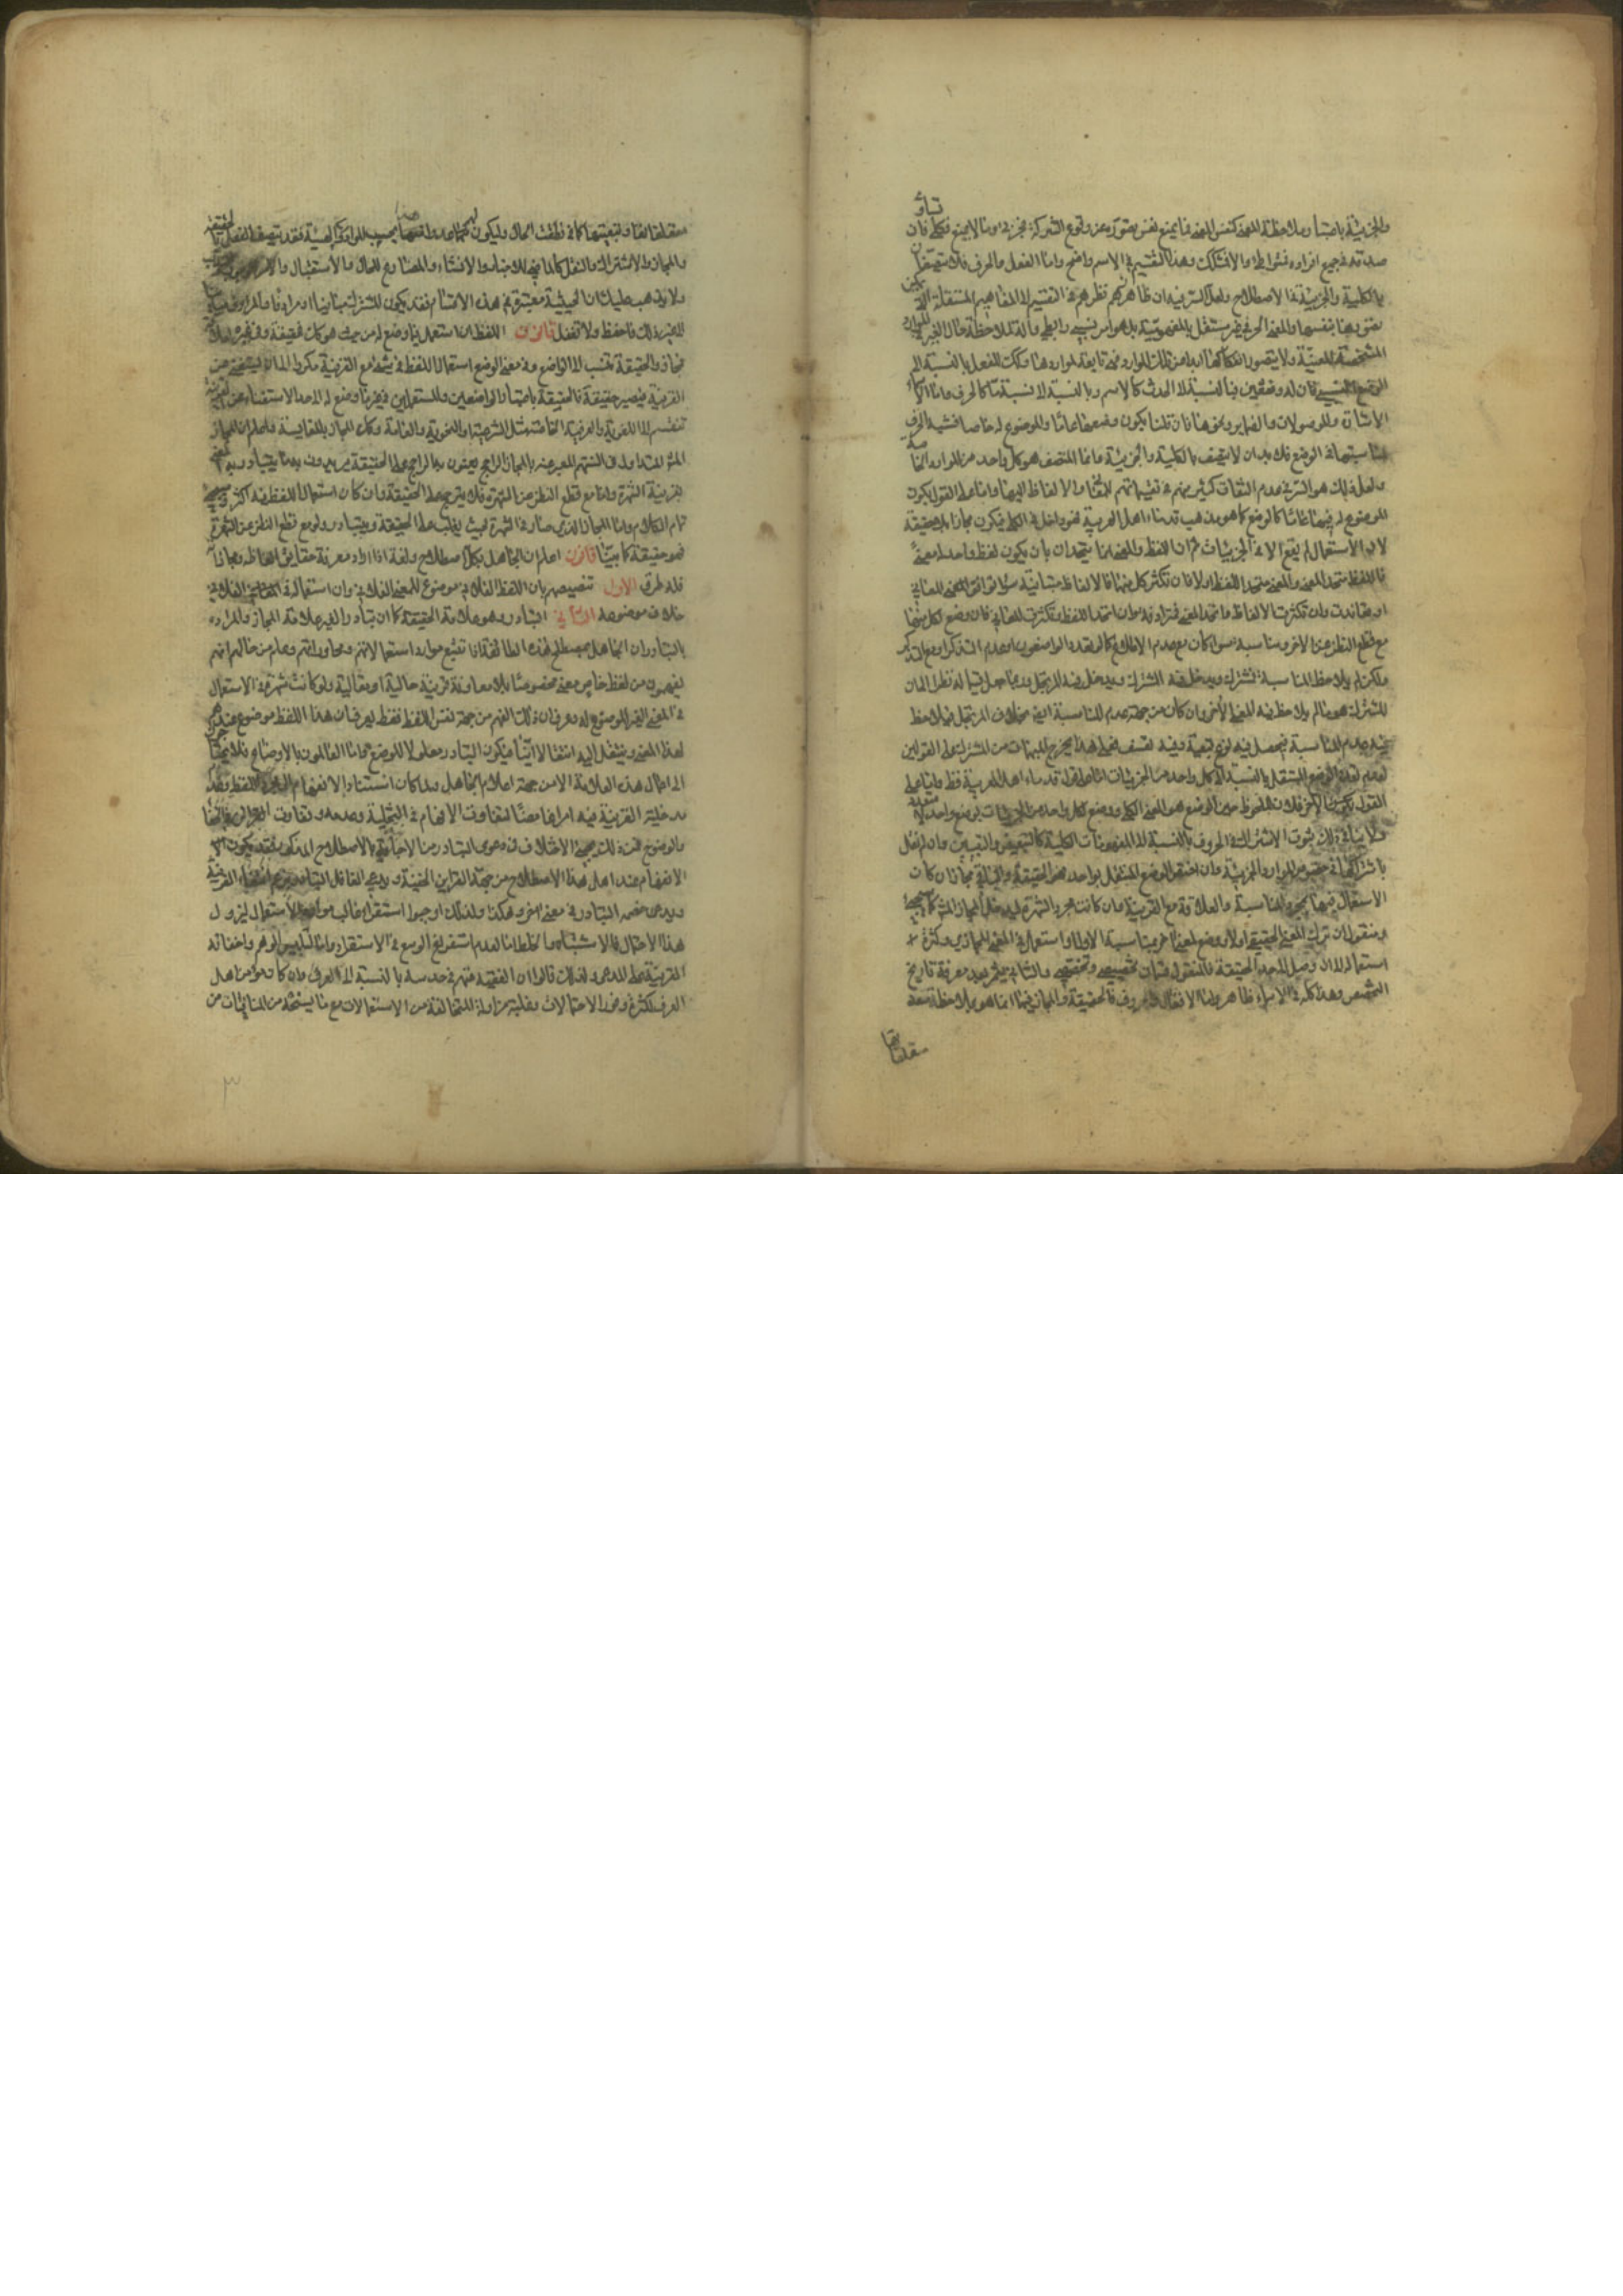 والجزئية باعتبار ملاحظة المعنى كنفس المعنى فما يمنع نفس تصوره عن وقوع الشركة فجزئي وما لا يمنع فكلي فان تساوى
صدقه في جميع افراده فمتواطي والا فمشكك وهذا التقسيم في الاسم واضح واما الفعل والحرف فلا يتصفان
بالكلية والجزئية في الاصطلاح ولعل السر فيه ان ظاهرهم نظرهم في التقسيم الى المفاهيم المستقلة التي يمكن
تصورها بنفسها والمعنى الحرفي غير مستقل بالمفهومية بل هو امر نسبي رابطي وآلة لملاحظة حال الغير في الموارد
المشخصة المعينة ولا يتصور انفكاكها ابدا عن تلك الموارد فهي تابعة لمواردها وكك الفعل بالنسبة الى
الوضع النسبي فان له وضعين فبالنسبة الى الحدث كالاسم وبالنسبة الى نسبة ما كالحرف واما اسماء
الاشارة والموصولات والضماير ونحوها فان قلنا بكون وضعها عاما والموضوع له خاصا فتشبه الحرف
لمناسبتها في الوضع فلا بد ان لا يتصف بالكلية والجزئية وانما المتصف هو كل واحد من الموارد الخاصة
ولعل ذلك هو السر في عدم التفات كثير منهم في تقسيماتهم للمعاني والالفاظ اليها واما على القول بكون
الموضوع له فيها عاما كالوضع كما هو مذهب قدماء اهل العربية فهو داخل في الكلي فيكون مجازا بلا حقيقة
لان الاستعمال لم يقع الا في الجزئيات ثم ان اللفظ والمعنى اما يتحدان بان يكون لفظ واحد له معنى
فاللفظ متحد المعنى والمعنى متحد اللفظ اولا فان تكثر كل منهما فالالفاظ متباينة سواء توافق المعاني
او تعاندت وان تكثرت الالفاظ واتحد المعنى فمترادفة وان اتحد اللفظ وتكثرت المعاني فان وضع لكل منها
مع قطع النظر عن الاخر ومناسبته سواء كان مع عدم الاطلاع كما لو تعدد الواضعون او عدم التذكر او مع التذكر
ولكن لم يلاحظ المناسبة فمشترك ويدخل فيه المشترك ويدخل فيه المرتجل وربما جعل قسيما له نظرا الى ان
المشترك هو ما لم يلاحظ فيه المعنى الآخر وان كان من جهة عدم المناسبة ايضا بخلاف المرتجل فيلاحظ
فيه عدم المناسبة فيحصل فيه نوع تبعية وفيه تعسف فعلى هذا يخرج المبهمات من المشترك على القولين
لعدم تعدد الوضع المستقل بالنسبة الى كل واحد من الجزئيات اما على قول قدماء اهل العربية فظ واما على
القول الاخر فلان الملحوظ حين الوضع هو المعنى الكلي ووضع لكل واحد من الجزئيات بوضع واحد
ولا ينافي ذلك ثبوت الاشتراك في الحروف بالنسبة الى المفهومات الكلية كالتبعيض والتبيين وان لم نقل
باشتراكها في خصوص الموارد الجزئية وان اختص الوضع المستقل بواحد فهو الحقيقة والباقي مجاز ان كان
الاستعمال فيها بمجرد المناسبة والعلاقة مع القرينة وان كانت هي الشهرة ليدخل المجاز المشهور
او منقول ان ترك المعنى الحقيقي اولا ووضع لمعنى اخر بمناسبة الاول او استعمل في المعنى المجازي وكثر
استعماله الى ان وصل الى حد الحقيقة فالمنقول قسمان تخصيصي وتخصصي والثاني يثمر بعد معرفة تاريخ
التخصص وهذا كله في الاسماء ظاهر واما الافعال والحروف فالحقيقة والمجاز فيهما انما هو بملاحظة متعلق
متعلقاتها
متعلقاتها وتبعيتها كما في نطقت الحال
والمجاز والاشتراك والنقل كالماضي للاخبار والانشاء والمضارع للحال والاستقبال والامر
ولا يذهب عليك ان الحيثية معتبرة في هذه الاقسام فقد يكون المشترك مباينا او مرادفا
الى غير ذلك فاحفظ ولا تغفل قانون اللفظ ان استعمل فيما وضع له من حيث هو كك فحقيقة وفي غيره لعلاقة
فمجاز والحقيقة تنسب الى الواضع وفي معنى الوضع استعمال اللفظ في شيء مع القرينة مكررا الى ان يستغني عن
القرينة فيصير حقيقة فالحقيقة باعتبار الواضعين والمستعملين في غير ما وضع له الى حد الاستغناء عن القرينة
تنقسم الى اللغوية والعرفية الخاصة مثل الشرعية والنحوية والعامة وكك المجاز بالمقايسة واعلم ان المجاز
المشهور المتداول في السنتهم المعبر عنه بالمجاز الراجح يعنون به الراجح على الحقيقة يريدون به ما يتبادر به المعنى
بقرينة الشهرة واما مع قطع النظر عن الشهرة فلا يترجح على الحقيقة وان كان استعمال اللفظ فيه اكثر وسيجيء
تمام الكلام واما المجاز الذي صار في الشهرة بحيث يغلب على الحقيقة ويتبادر ولو مع قطع النظر عن الشهرة
فهو حقيقة كما بينا قانون اعلم ان الجاهل بكل اصطلاح ولغة اذا اراد معرفة حقايق الفاظه ومجازاته
فله طرق الاول تنصيصهم بان اللفظ الفلاني موضوع للمعنى الفلاني وان استعماله في المعنى الفلاني
خلاف موضوعه الثاني التبادر وهو علامة الحقيقة كما ان تبادر الغير علامة المجاز والمراد
بالتبادر ان الجاهل بمصطلح هذه الطائفة اذا تتبع موارد استعمالاتهم ومحاوراتهم وعلم من حالهم انهم
يفهمون من لفظ خاص معنى مخصوصا بلا معاونة قرينة حالية او مقالية ولو كانت شهرة في الاستعمال
في المعنى الغير الموضوع له وعرف ان ذلك الفهم من جهة نفس اللفظ فقط يعرف ان هذا اللفظ موضوع عندهم
لهذا المعنى وينتقل اليه انتقالا انيا فيكون التبادر معلولا للوضع واما العالمون بالاوضاع فلا يحتاجون
الى اعمال هذه العلامة الا من جهة اعلام الجاهل ولما كان استناد الانفهام الى مجرد اللفظ وعدم
مدخلية القرينة فيه امرا غامضا لتفاوت الافهام في التخلية وعدمه وتفاوت القراين في الخفاء
والوضوح فمن ذلك يجيء الاختلاف في دعوى التبادر من الاجانب بالاصطلاح المذكور فقد يكون
الانفهام عند اهل هذا الاصطلاح من جهة القراين الخفية ويدعي الغافل التبادر بزعم انتفاء القرينة
ويدعي خصمه التبادر في معنى اخر وهكذا ولذلك اوجبوا استقراء غالب موارد الاستعمال ليزول
هذا الاحتمال فالاشتباه والخلط اما لعدم استفراغ الوسع في الاستقراء واما لتلبيس الوهم واخفائه
القرينة على المدعي ولذلك قالوا ان الفقيه متهم في حدسه بالنسبة الى العرف وان كان هو من اهل
العرف لكثرة وفور الاحتمالات وغلبة مزاولة المتخالفة من الاستعمالات مع ما يسنحه من المنافيات من